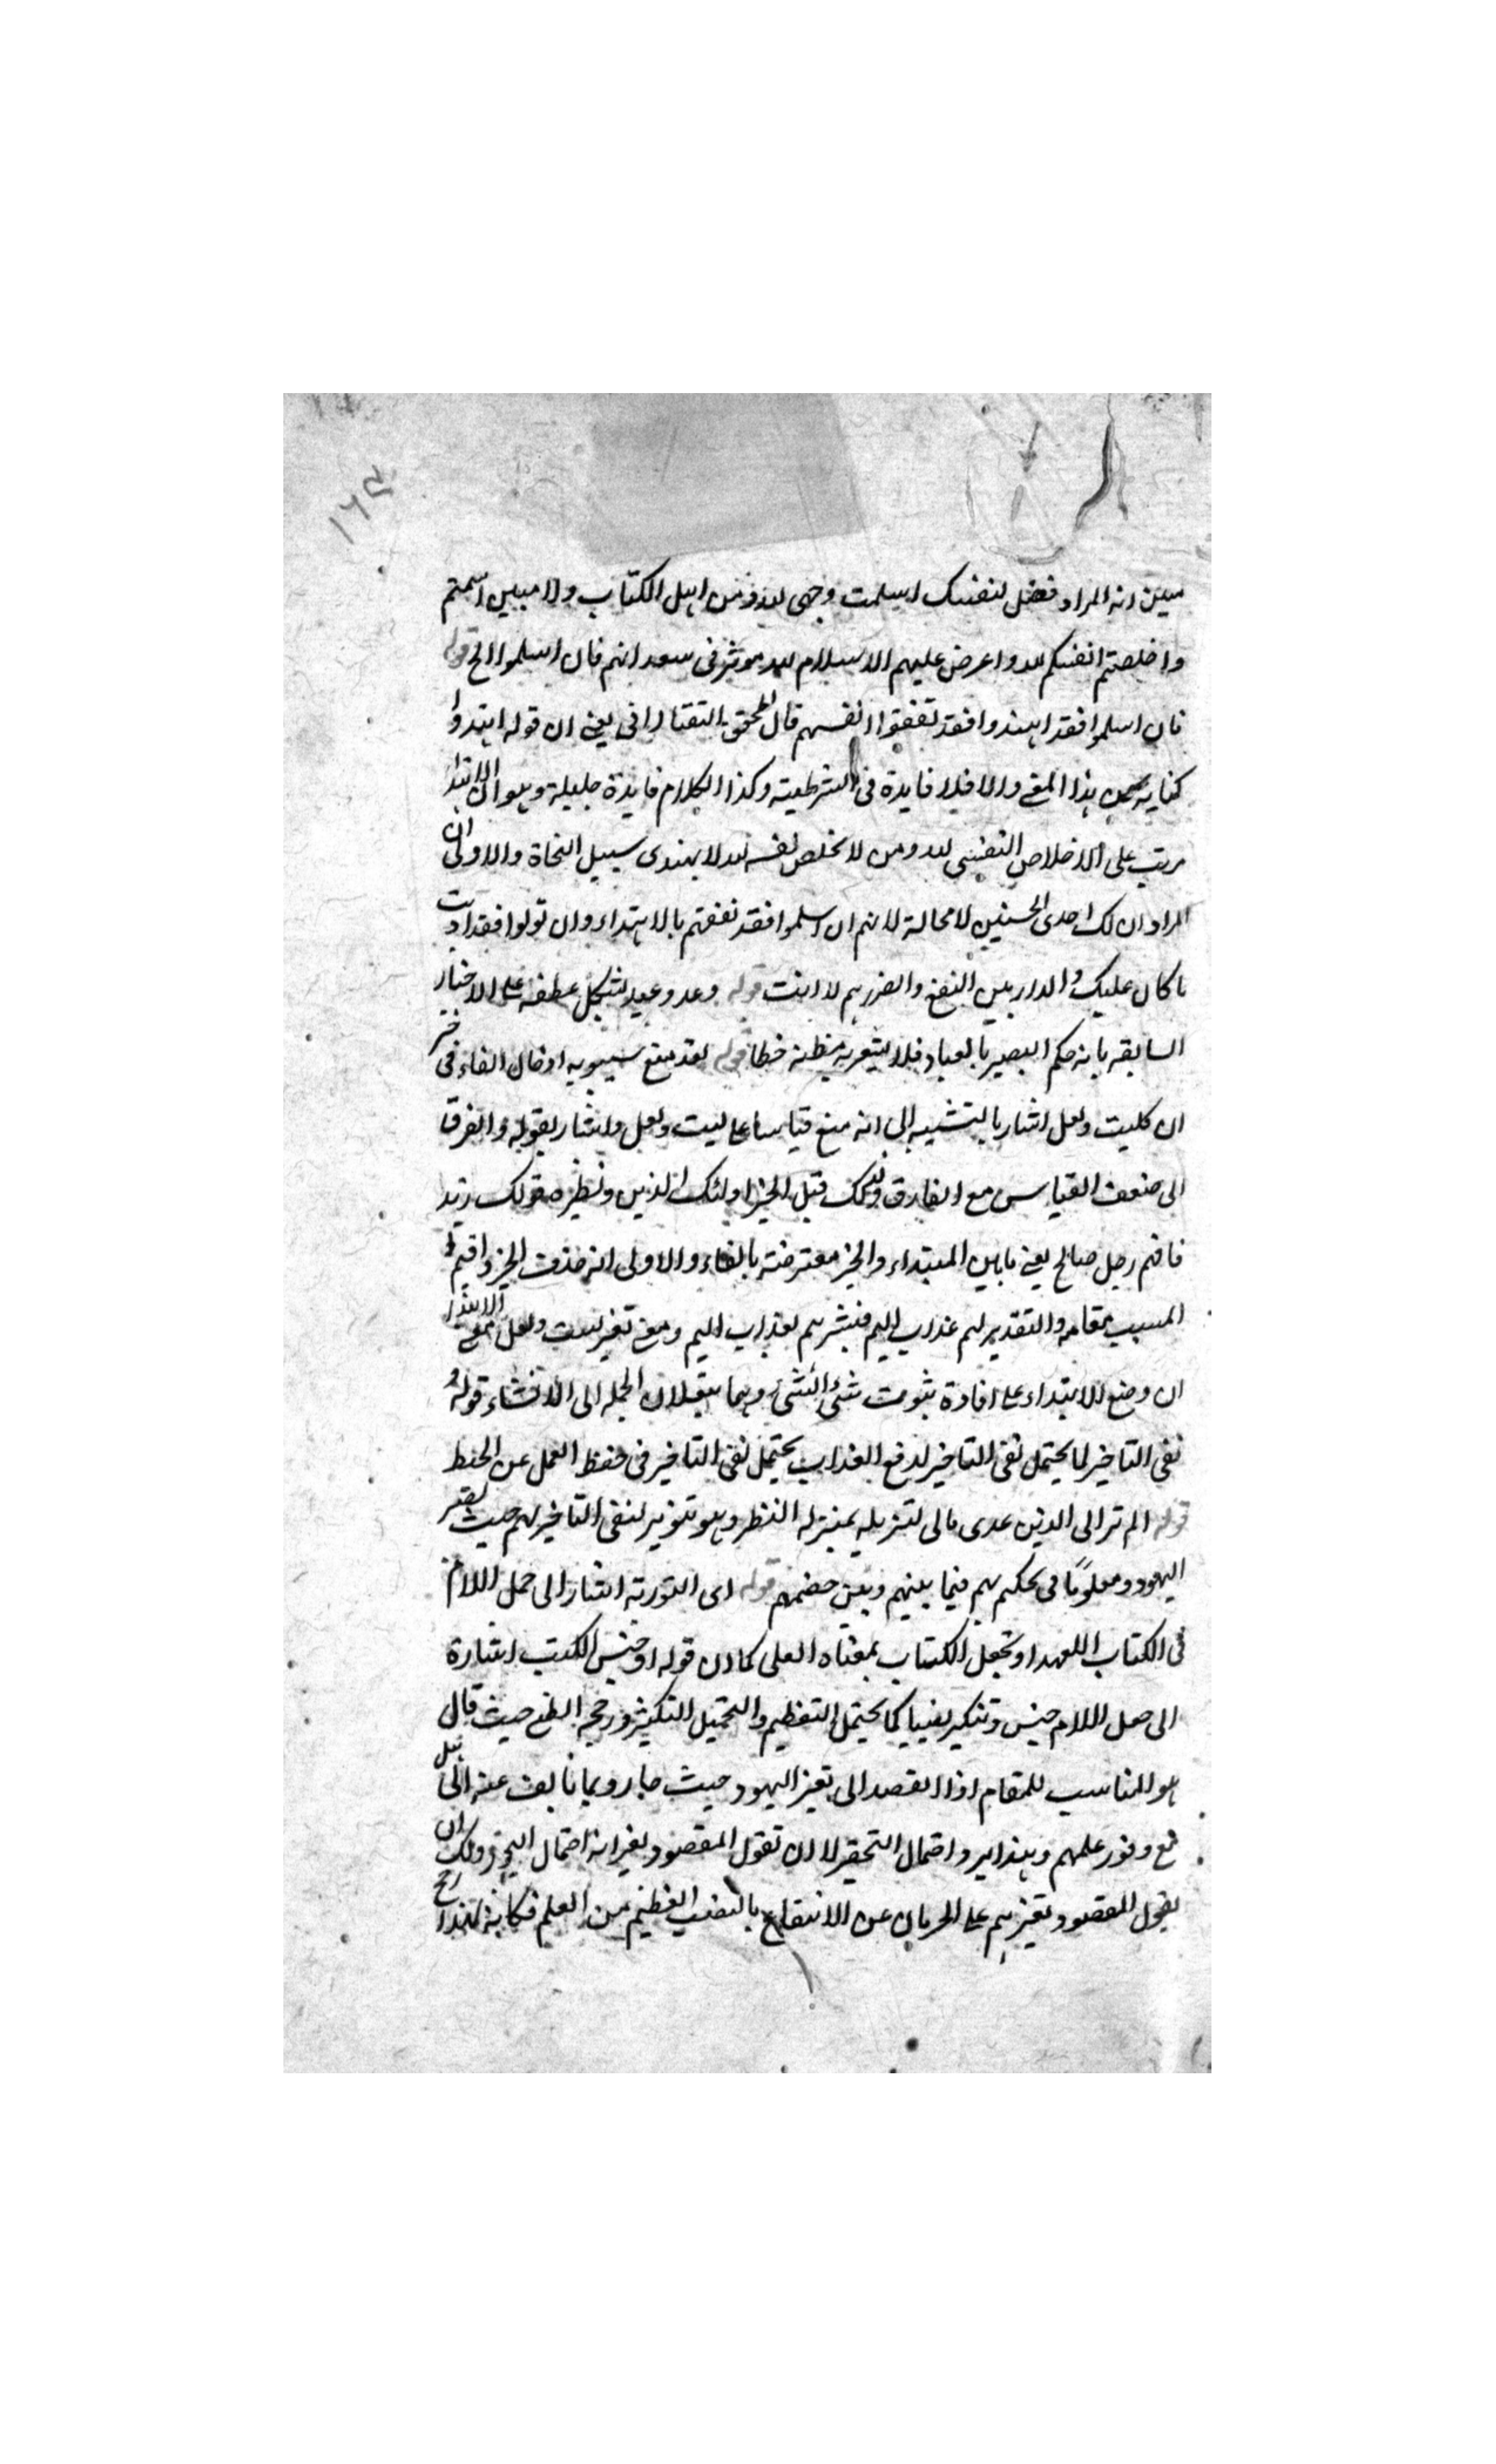 ١٦٤
انه المراد فقل لنفسك اسلمت وجهى لله من اهل الكتاب والاميين اسلمتم
واخلصتم انفسكم لله واعرض عليهم الاسلام فى فان اسلموا الخ قوله
فان اسلموا فقد اهتدوا فقد نفعوا انفسهم قال المحقق التفتازانى يعنى ان قوله اهتدوا
كناية عن هذا المعنى والا فلا فايدة فى الشرطية وكذا الكلام فايدة جليلة وهو ان الاهتداء
مرتب على الاخلاص النفسى لله ومن لا يخلص نفسه لله لا يهتدى سبيل النجاة والاولى ان
المراد ان لك احدى الحسنيين لا محالة لانهم ان اسلموا فقد نفعتهم بالاهتداء وان تولوا فقد اديت
ما كان عليك والدار بين النفع والضرر هم لا انت قوله وعد وعيد عطفه على الاخبار
السابقة بانه حكم البصير بالعباد فلا خطا قوله لقد منع سيبويه ادخال الفاء فى خبر
ان كليت ولعل اشار بالتشبيه الى انه منع قياسا على ليت ولعل واشار بقوله والفرق
الى ضعف القياس مع الفارق ولذلك قيل الخبر اولئك الذين ونظيره قولك زيد
فافهم رجل صالح يعنى ما بين المبتداء والخبر معترضة بالفاء والاولى انه حذف الخبر واقيم
المسبب مقامه والتقدير لهم عذاب اليم فبشرهم بعذاب اليم ومعنى تغير ليت ولعل معنى الابتداء
ان وضع الابتداء على افادة ثبوت شئ لشئ وهما ينقلان الجملة الى الانشاء قوله
نفى التاخير لما يحتمل نفى التاخير لدفع العذاب يحتمل نفى التاخير فى حفظ العمل عن الحبط
قوله الم تر الى الذين عدى بالى لتنزيله بمنزلة النظر وهو تنوير لنفى التاخير لهم حيث
اليهود و فى بهم فيما بينهم وبين خصمهم قوله اى التورية اشار الى حمل اللام
فى الكتاب للعهد او تجعل الكتاب بمعناه العلمى كما ان قوله او جنس الكتب اشارة
الى حمل اللام جنس وتنكير نصيبا كما يحتمل التعظيم والتحميل التكثير ورجحه حيث قال
هو المناسب للمقام اذا القصد الى اليهود حيث عنه
مع وفور علمهم واحتمال التحقير لا ان تقول المقصود احتمال ولك ان
تقول المقصود تعييرهم على الحرمان عن الانتفاع بالنصيب العظيم من العلم